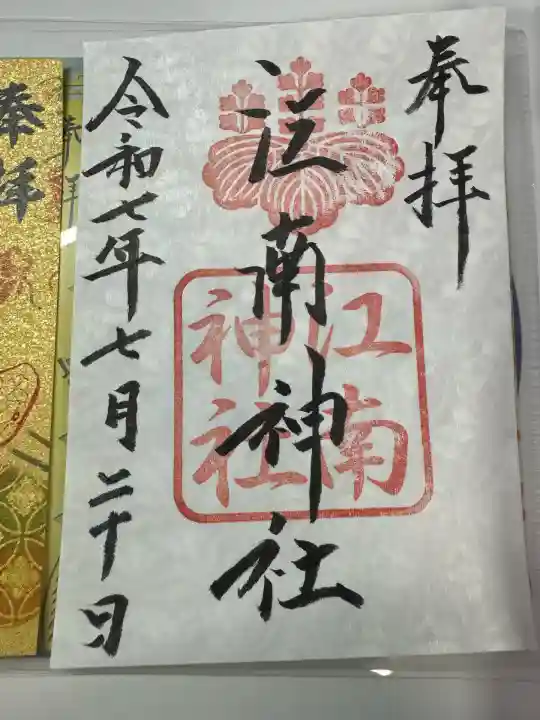 奉拝
江南神社
江南
神社
令和七年七月二十日
奉拝
奉拝